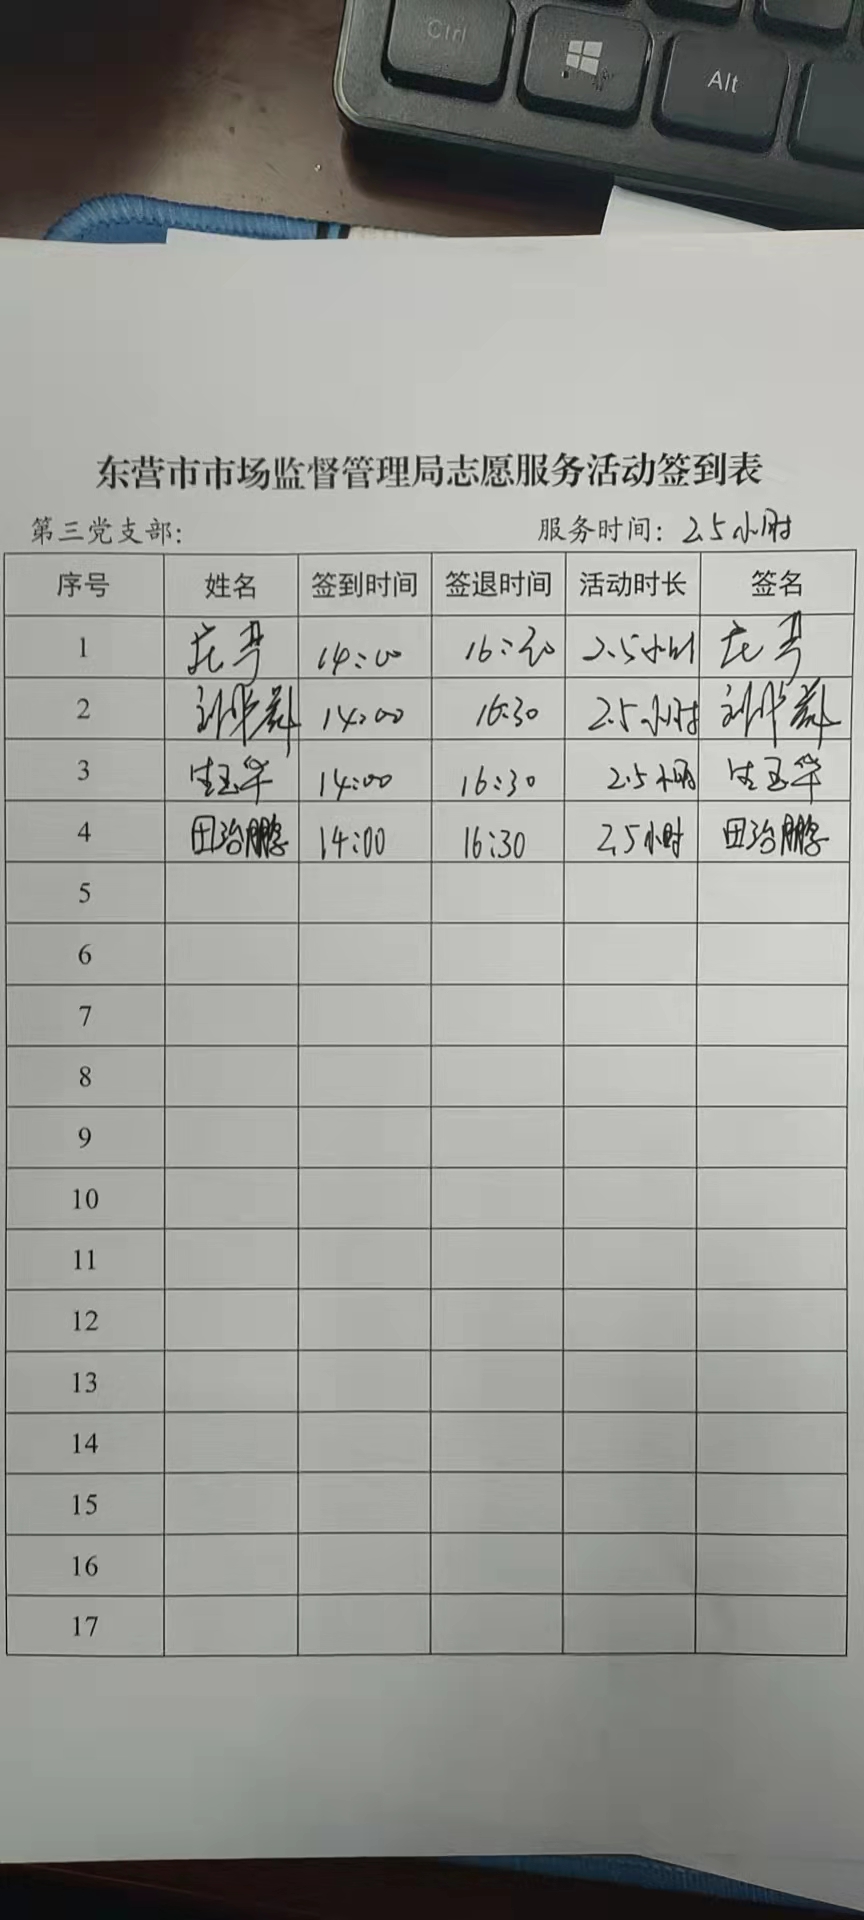 Ctrl
Alt
东营市市场监督管理局志愿服务活动签到表
第三党支部: 服务时间: 2.5小时
序号 姓名 签到时间 签退时间 活动时长 签名
1 14:00 16:30 2.5小时
2 刘华群 14:00 16:30 2.5小时 刘华群
3 生玉华 14:00 16:30 2.5小时 生玉华
4 田治鹏 14:00 16:30 2.5小时 田治鹏
5
6
7
8
9
10
11
12
13
14
15
16
17